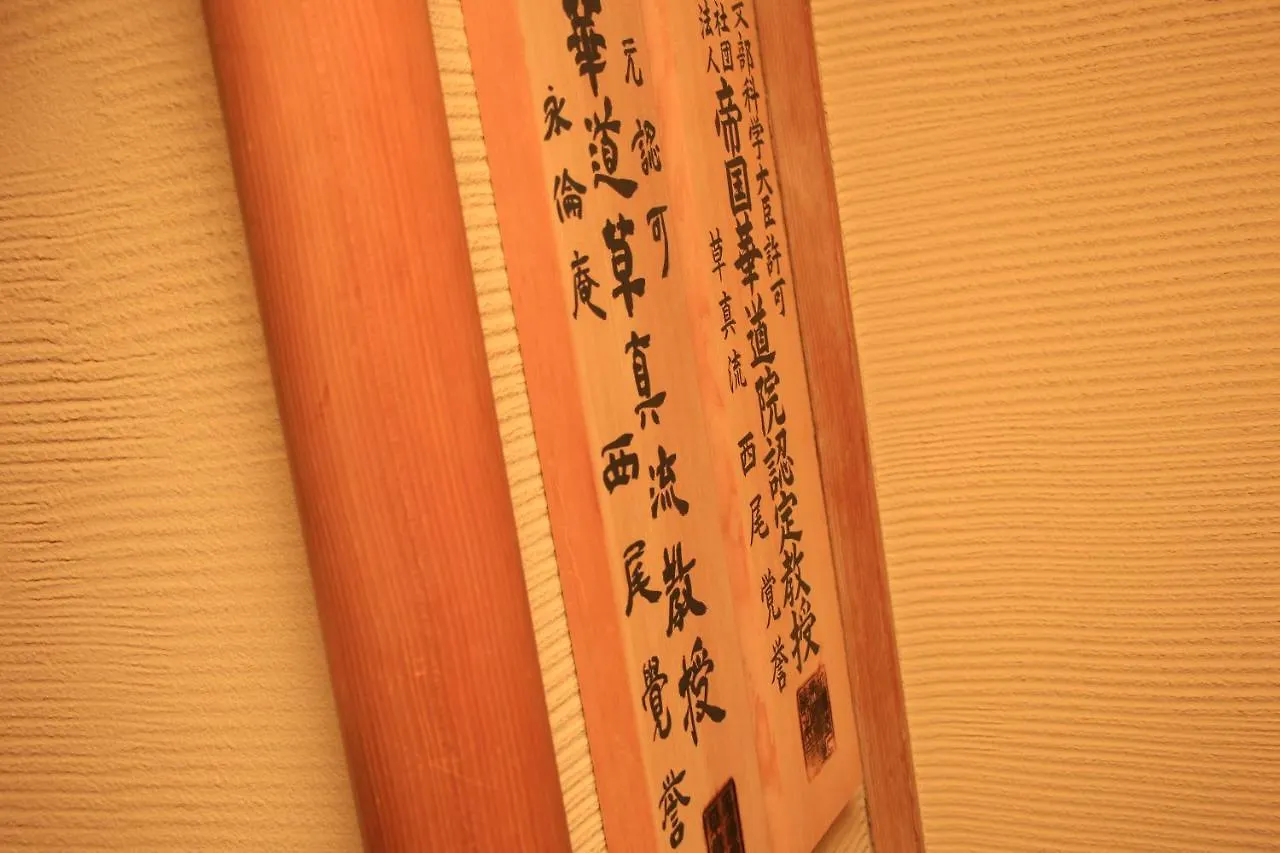 文部科学大臣許可
社団法人 帝国華道院認定教授
草真流 西尾覚誉
元認可
華道草真流教授
永倫庵 西尾覺誉